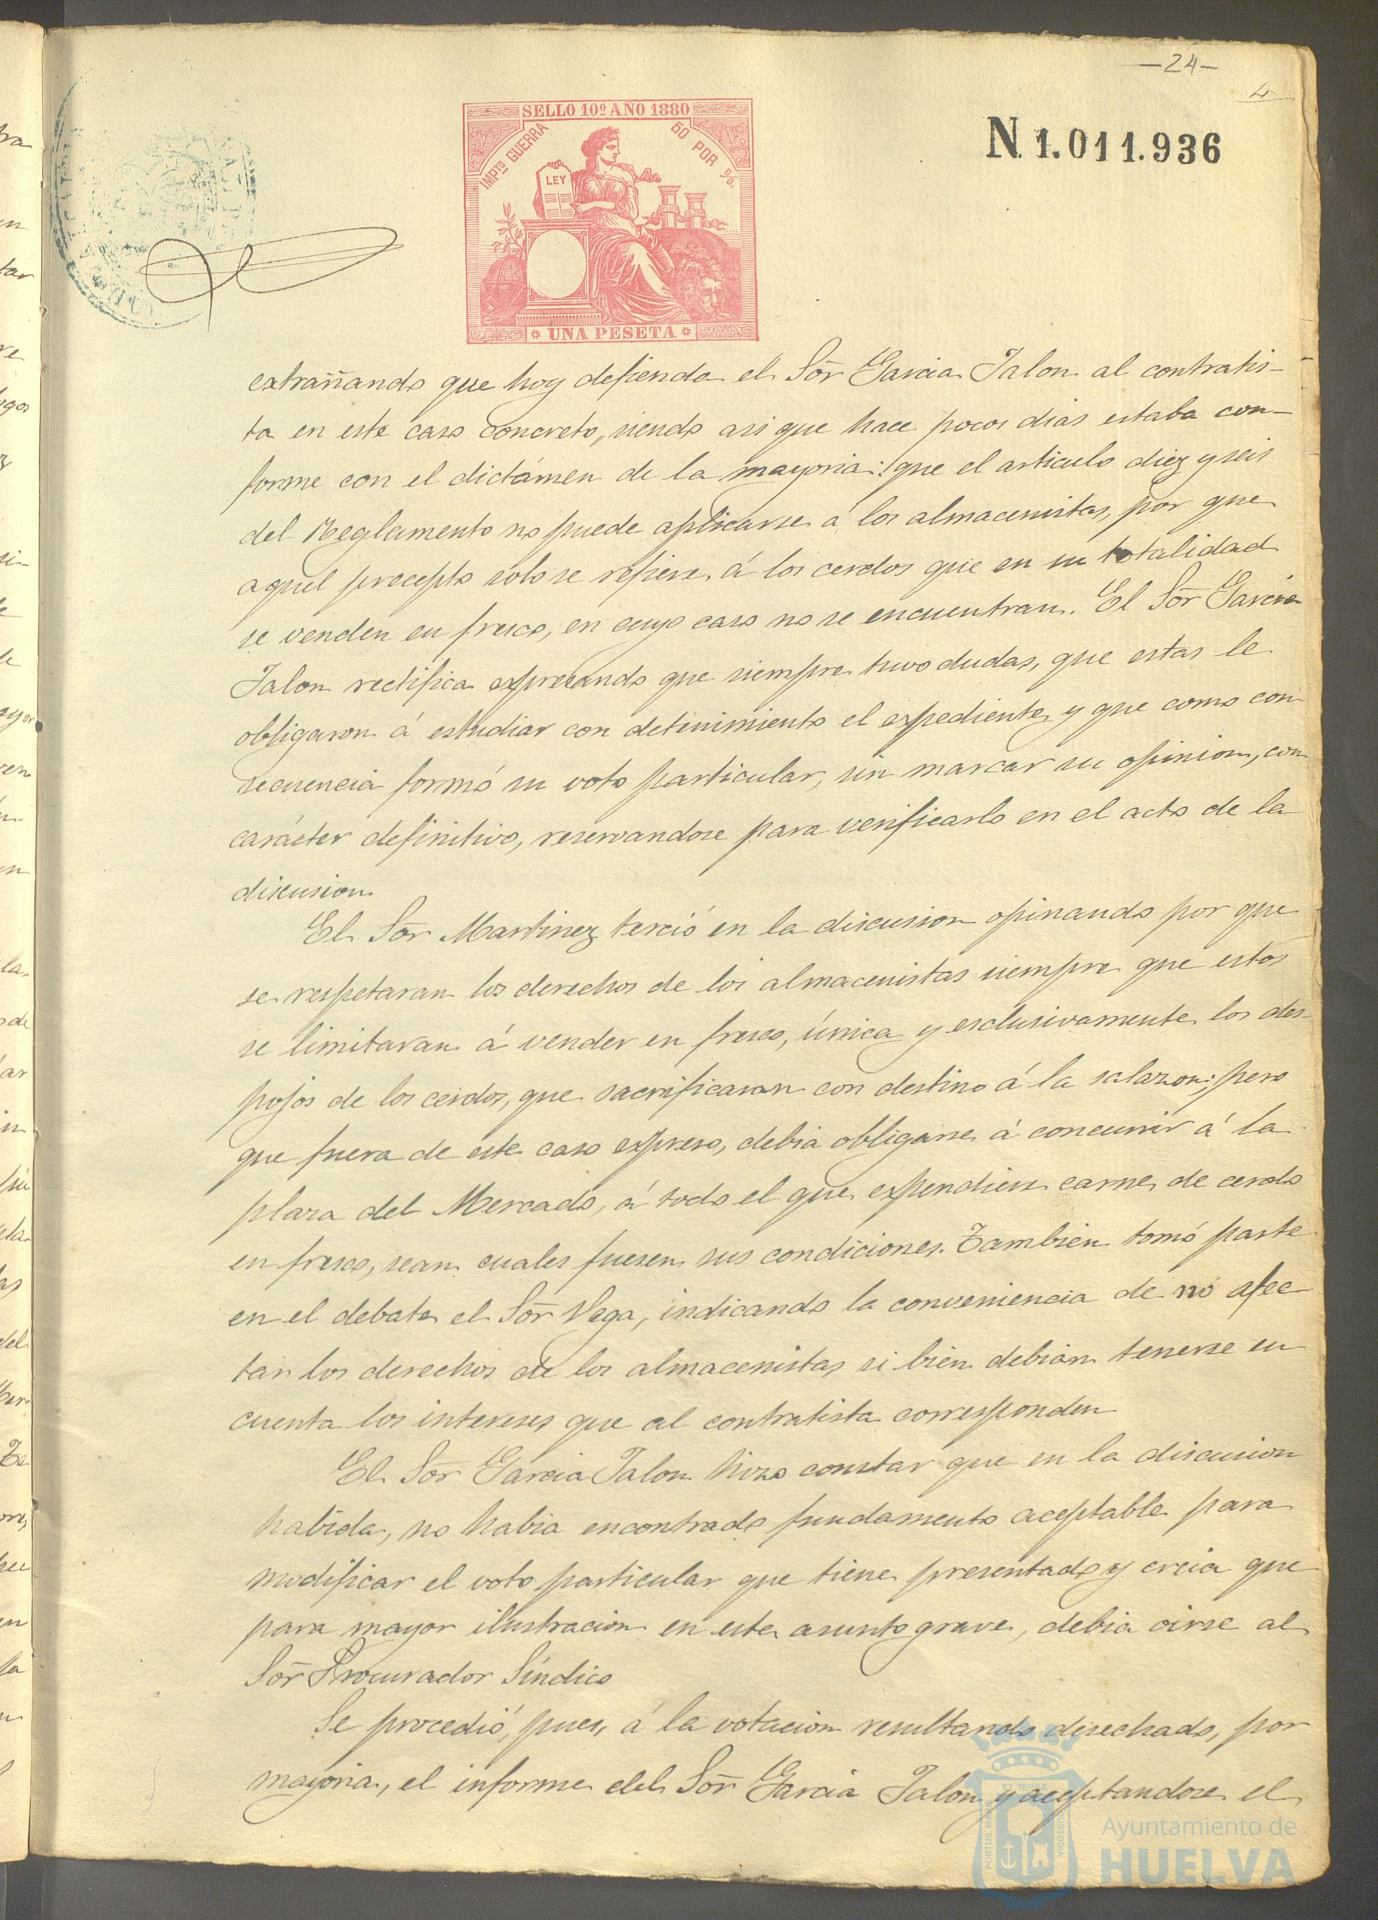 -24-
4
SELLO 10º AÑO 1880
IMPTO GUERRA
50 POR %.
LEY
UNA PESETA
N. 1.011.936
extrañando que hoy defienda el Sor̃ Garcia Jalon al contratis-
ta en este caso concreto, siendo asi que hace pocos dias estaba con-
forme con el dictámen de la mayoria: que el articulo diez y seis
del Reglamento no puede aplicarse á los almacenistas, por que
aquel precepto solo se refiere á los cerdos que en su totalidad
se venden en fresco, en cuyo caso no se encuentran. El Sor̃ Garcia
Jalon rectifica expresando que siempre tuvo dudas, que estas le
obligaron á estudiar con detenimiento el expediente y que como con
secuencia formó su voto particular, sin marcar su opinion, con
carácter definitivo, reservandose para verificarlo en el acto de la
discusion.
El Sor̃ Martinez terció en la discusion opinando por que
se respetaran los derechos de los almacenistas siempre que estos
se limitaran á vender en fresco, única y esclusivamente los des-
pojos de los cerdos, que sacrificaran con destino á la salazon; pero
que fuera de este caso expreso, debia obligarse á concurrir á la
plaza del Mercado, á todo el que expendiese carne de cerdo
en fresco, sean cuales fuesen sus condiciones. Tambien tomó parte
en el debate el Sor̃ Vega, indicando la conveniencia de no afec
tar los derechos de los almacenistas, si bien debian tenerse en
cuenta los intereses que al contratista corresponden
El Sor̃ Garcia Jalon hizo constar que en la discusion
habida, no habia encontrado fundamento aceptable para
modificar el voto particular que tiene presentado y creia que
para mayor ilustracion en este asunto grave, debia oirse al
Sor̃ Procurador Síndico
Se procedió, pues, á la votacion resultando desechado, por
mayoria, el informe del Sor̃ Garcia Jalon y aceptandose el
Ayuntamiento de
HUELVA